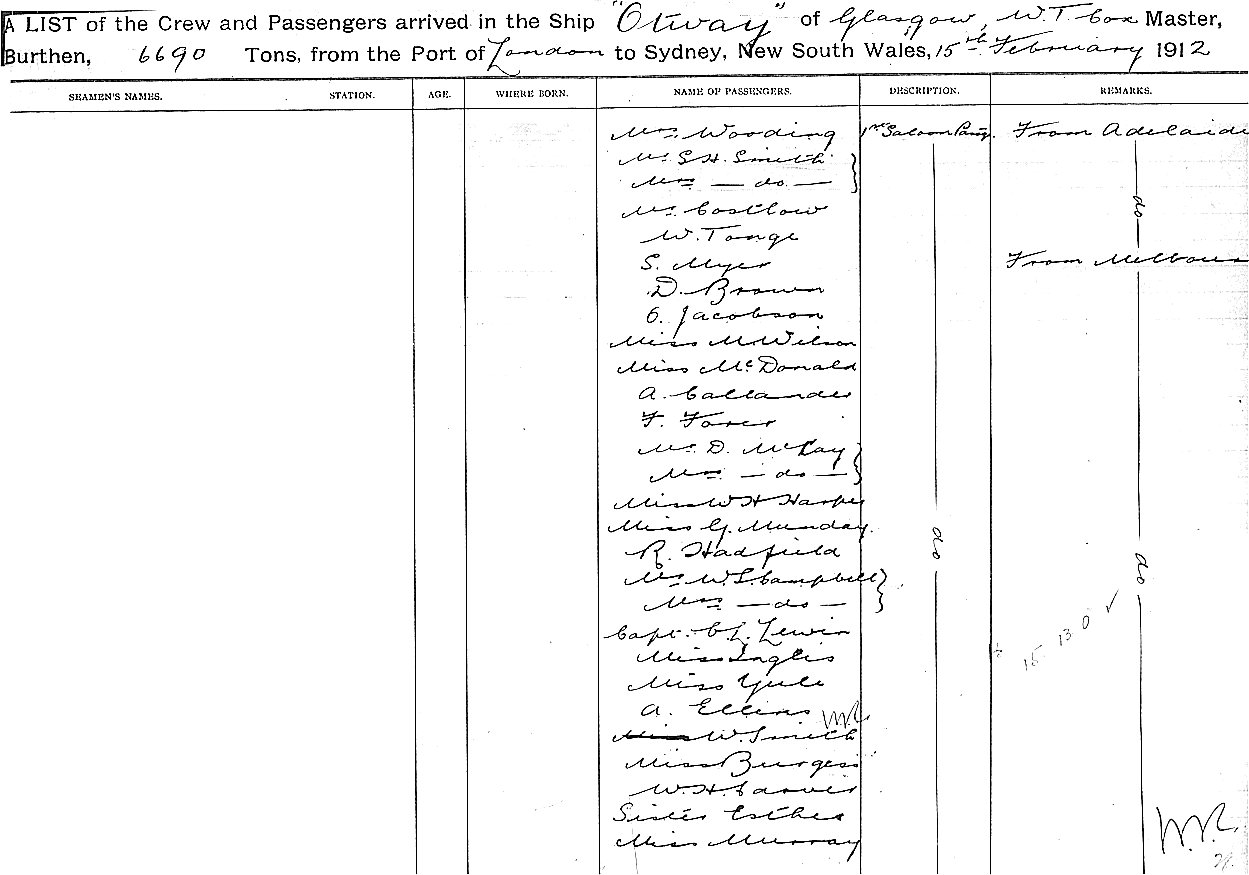 A LIST of the Crew and Passengers arrived in the Ship "Otway" of Glasgow, W.T. Cox Master,
Burthen, 6690 Tons, from the Port of London to Sydney, New South Wales, 15th February 1912
SEAMEN'S NAMES. STATION. AGE. WHERE BORN. NAME OF PASSENGERS. DESCRIPTION. REMARKS.
Mrs Wooding 1st Saloon From Adelaide
Mr S.H. Smith
Mrs — do —
Mr Costlow do
W. Tonge
S. Myer From Melbour
D. Brown
Jacobson
Miss M Wilson
Miss McDonald
A. Callander
F.
Mr D. McKay
Mrs — do —
W H Harper
Miss G. Munday
R. Hadfield do do
Mr W.S. Campbell
Mrs — do —
Capt. C.L. Lewin 15. 13. 0 ✓
Miss Inglis
Miss Yule
A. Ellens
W. Smith
Miss Burgess
W.H. Carver
Sister Esther
Miss Murray